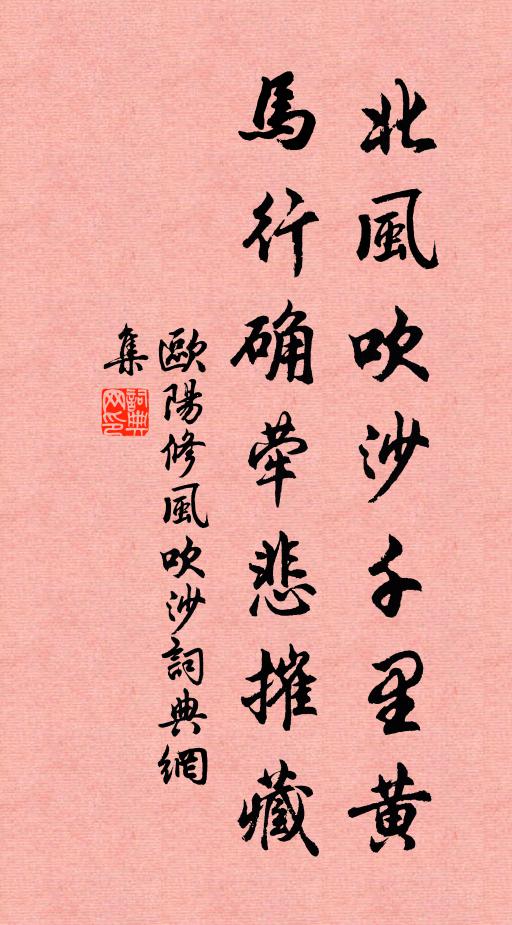 北風吹沙千里黃
馬行确犖悲摧藏
歐陽修風吹沙詞典網
集
詞典
网印